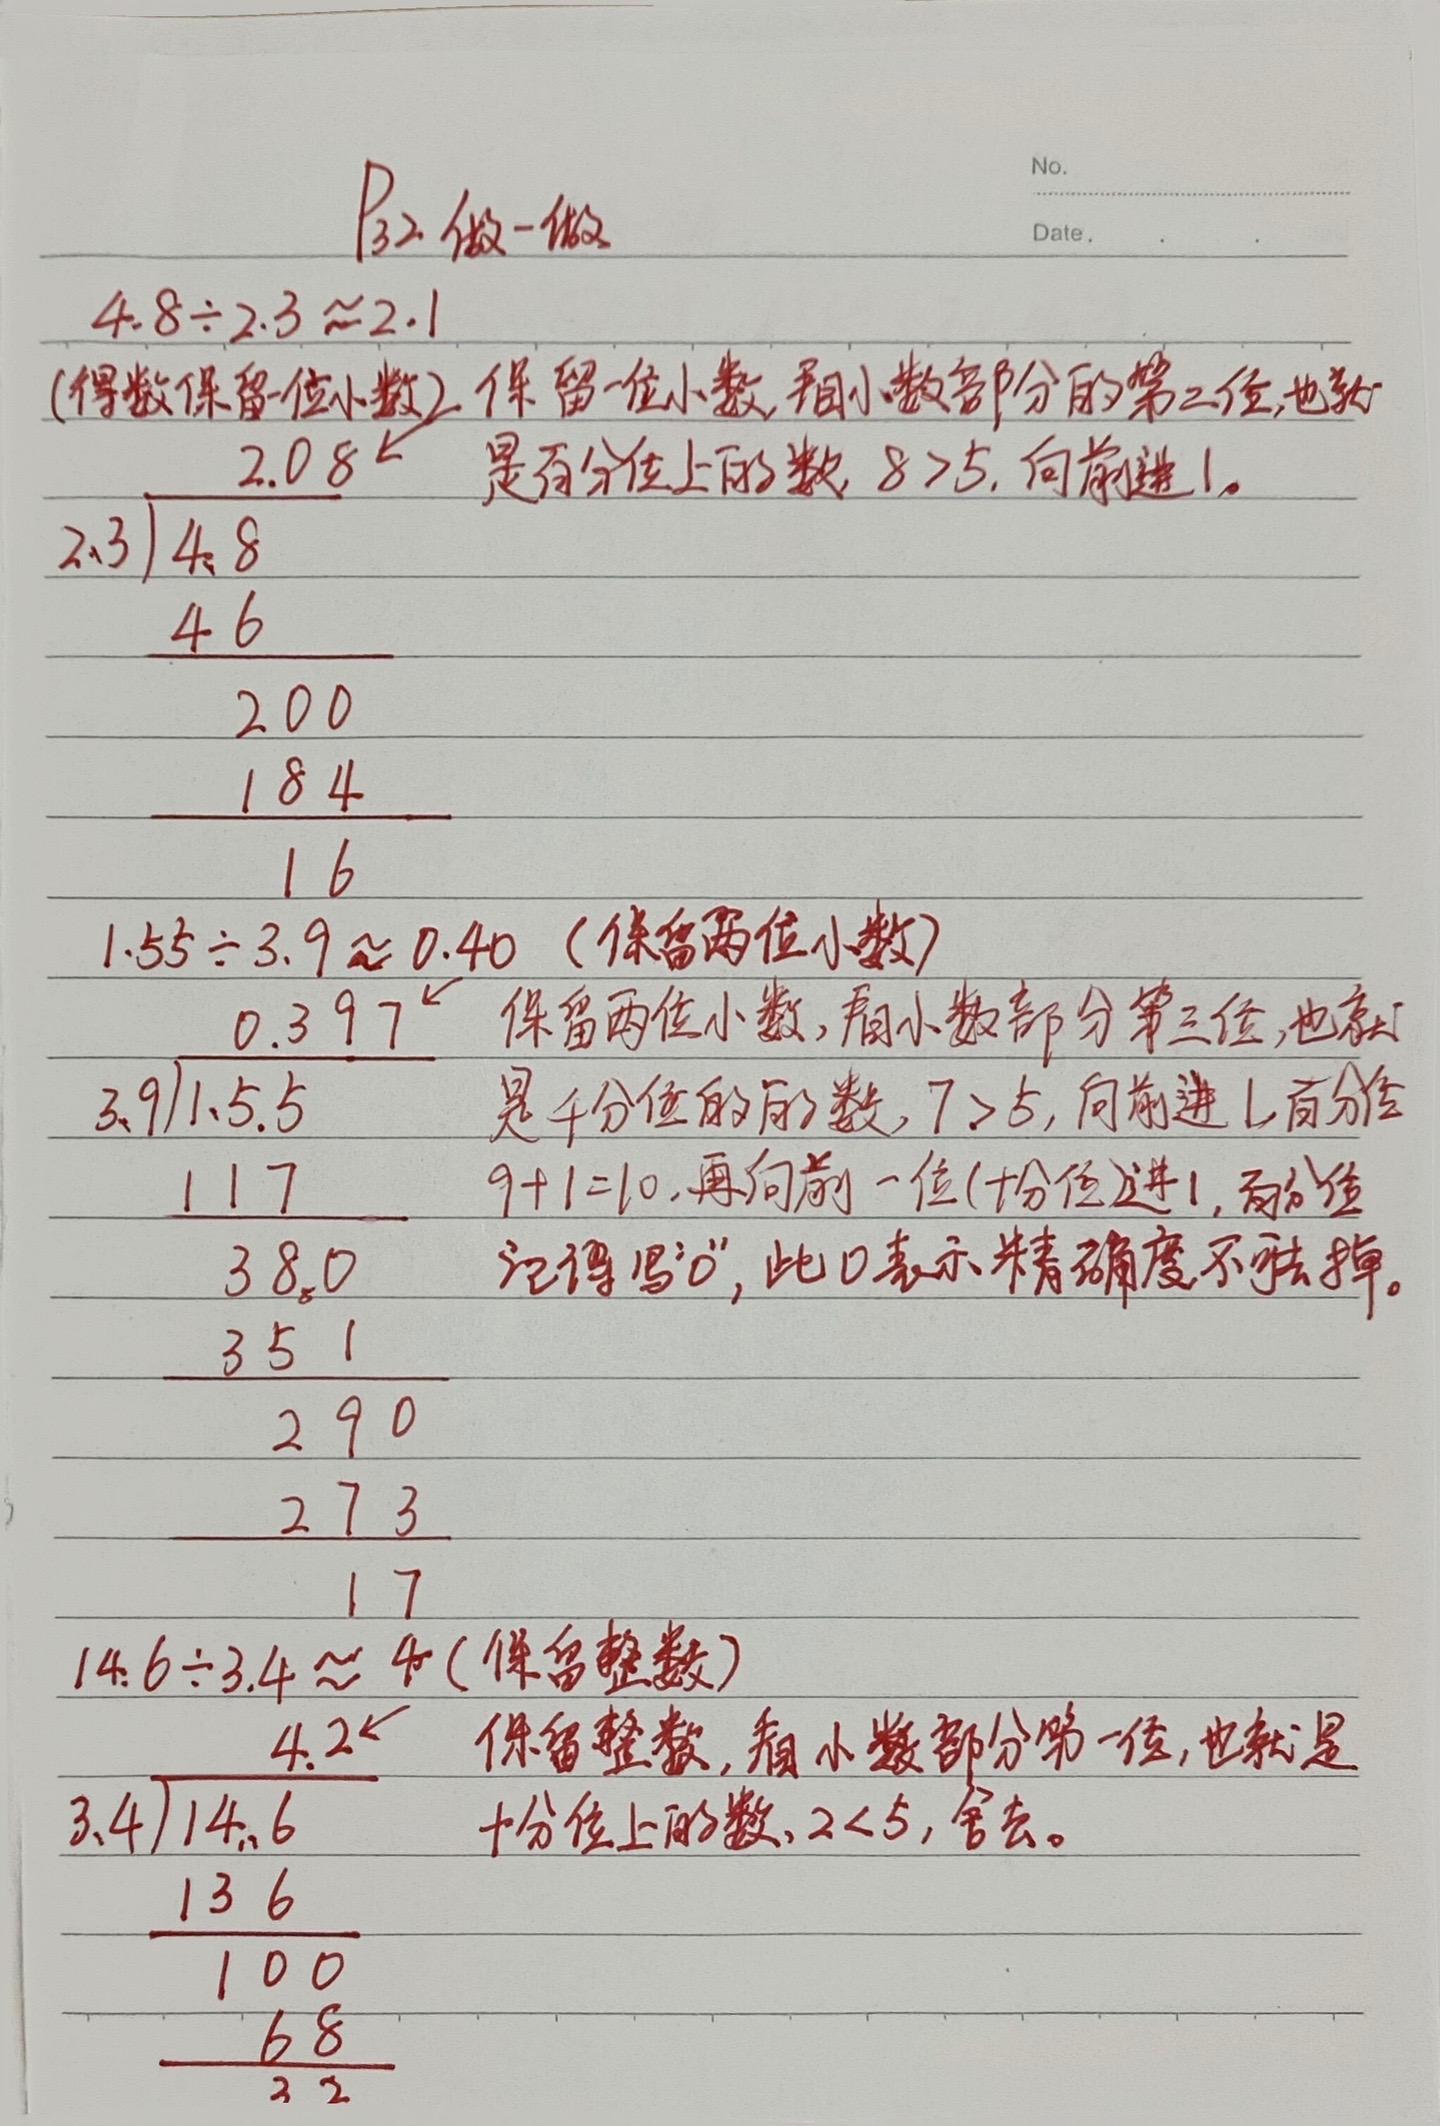 No.
Date.
P32 做一做
4.8÷2.3≈2.1
(得数保留一位小数) 保留一位小数,看小数部分的第二位,也就
2.08 是百分位上的数, 8>5, 向前进1。
2.3)4.8
46
200
184
16
1.55÷3.9≈0.40 (保留两位小数)
0.397 保留两位小数,看小数部分第三位,也就
3.9)1.5.5 是千分位的的数,7>5,向前进1,百分位
117 9+1=10,再向前一位(十分位)进1,百分位
38.0 记得写"0",此0表示精确度不可去掉。
351
290
273
17
14.6÷3.4≈4(保留整数)
4.2 保留整数,看小数部分第一位,也就是
3.4)14.6 十分位上的数,2<5,舍去。
136
100
68
32